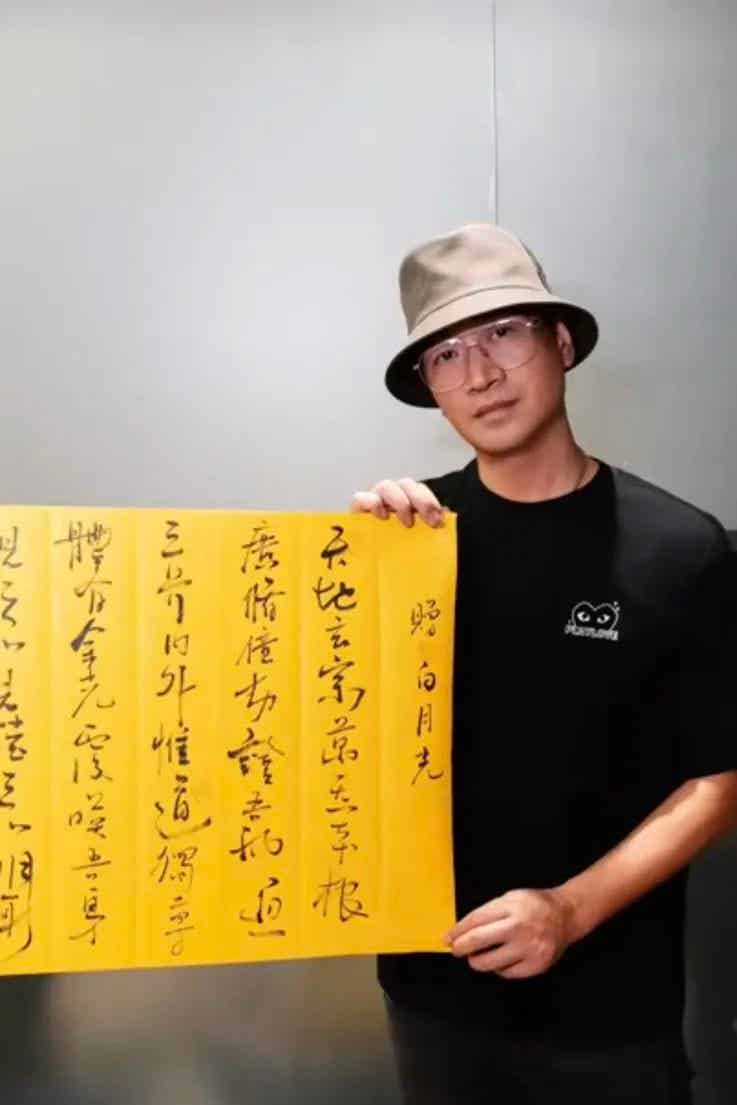 贈 白月光
天地玄宗萬炁本根
廣脩億劫證吾神通
三界內外惟道獨尊
體有金光覆映吾身